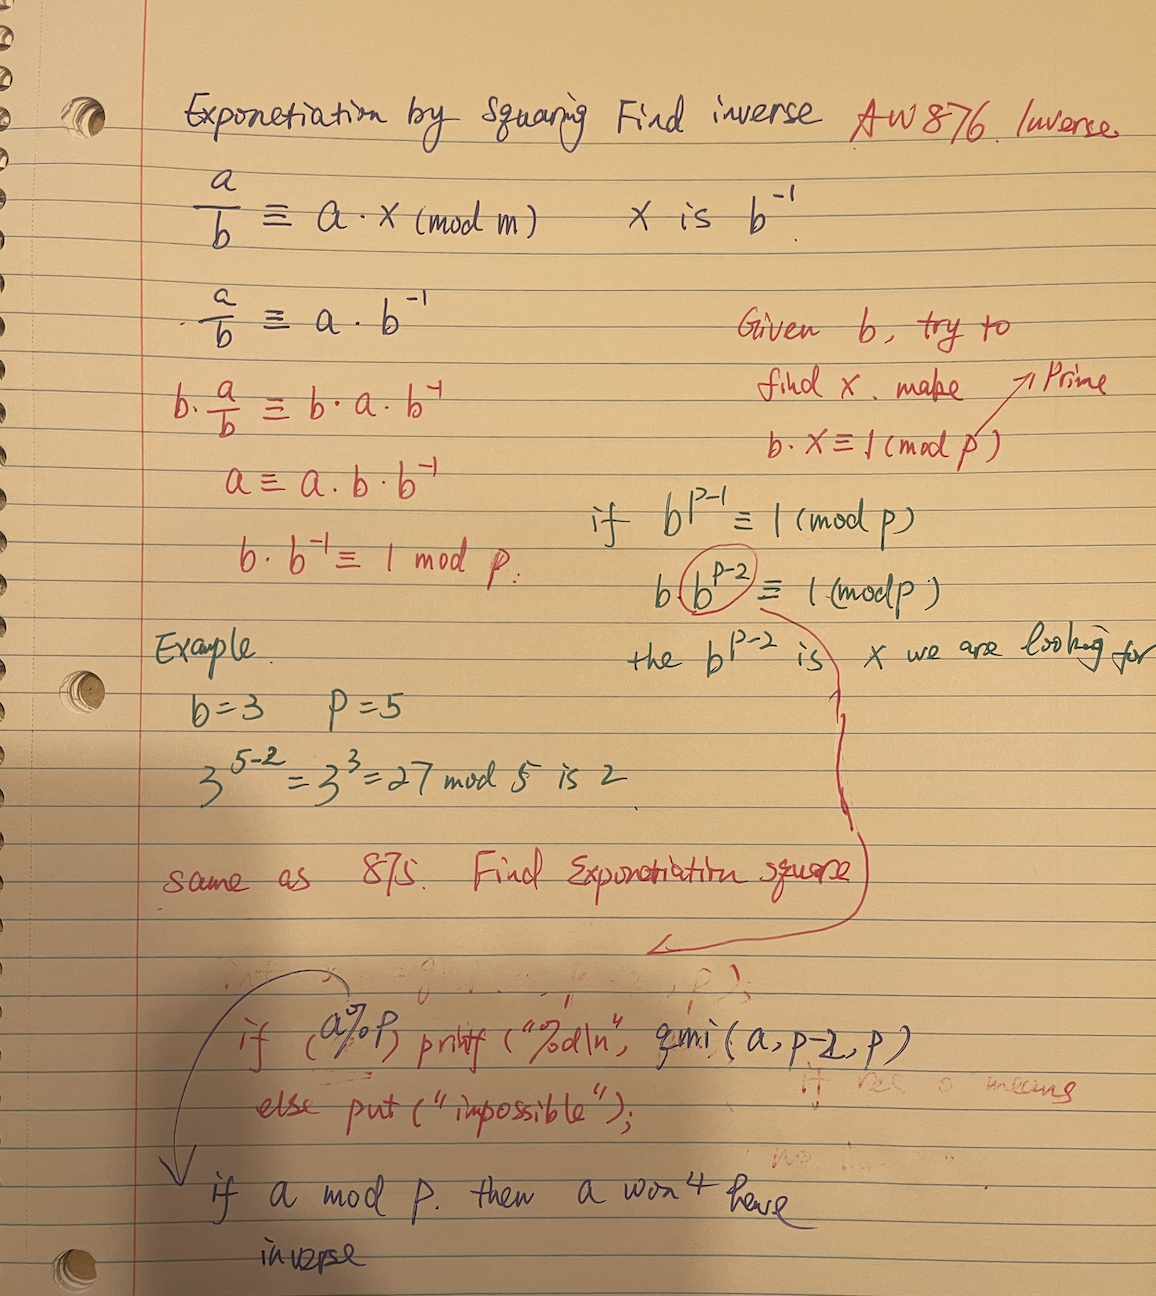 Exponetiation by Squaring Find inverse AW876. Inverse.
a/b ≡ a · x (mod m) x is b⁻¹.
a/b ≡ a · b⁻¹
b · a/b ≡ b · a · b⁻¹
a ≡ a · b · b⁻¹
b · b⁻¹ ≡ 1 mod p.
Given b, try to
find x. make
Prime
b · x ≡ 1 (mod p)
if b^(p-1) ≡ 1 (mod p)
b · b^(p-2) ≡ 1 (mod p)
the b^(p-2) is x we are looking for
Example.
b=3 P=5
3^(5-2) = 3³ = 27 mod 5 is 2
same as 875. Find Exponetiation square
if (a%P) printf ("%d\n", qmi (a, p-2, p)
else put ("impossible");
if a mod p. then a won't have
inverse